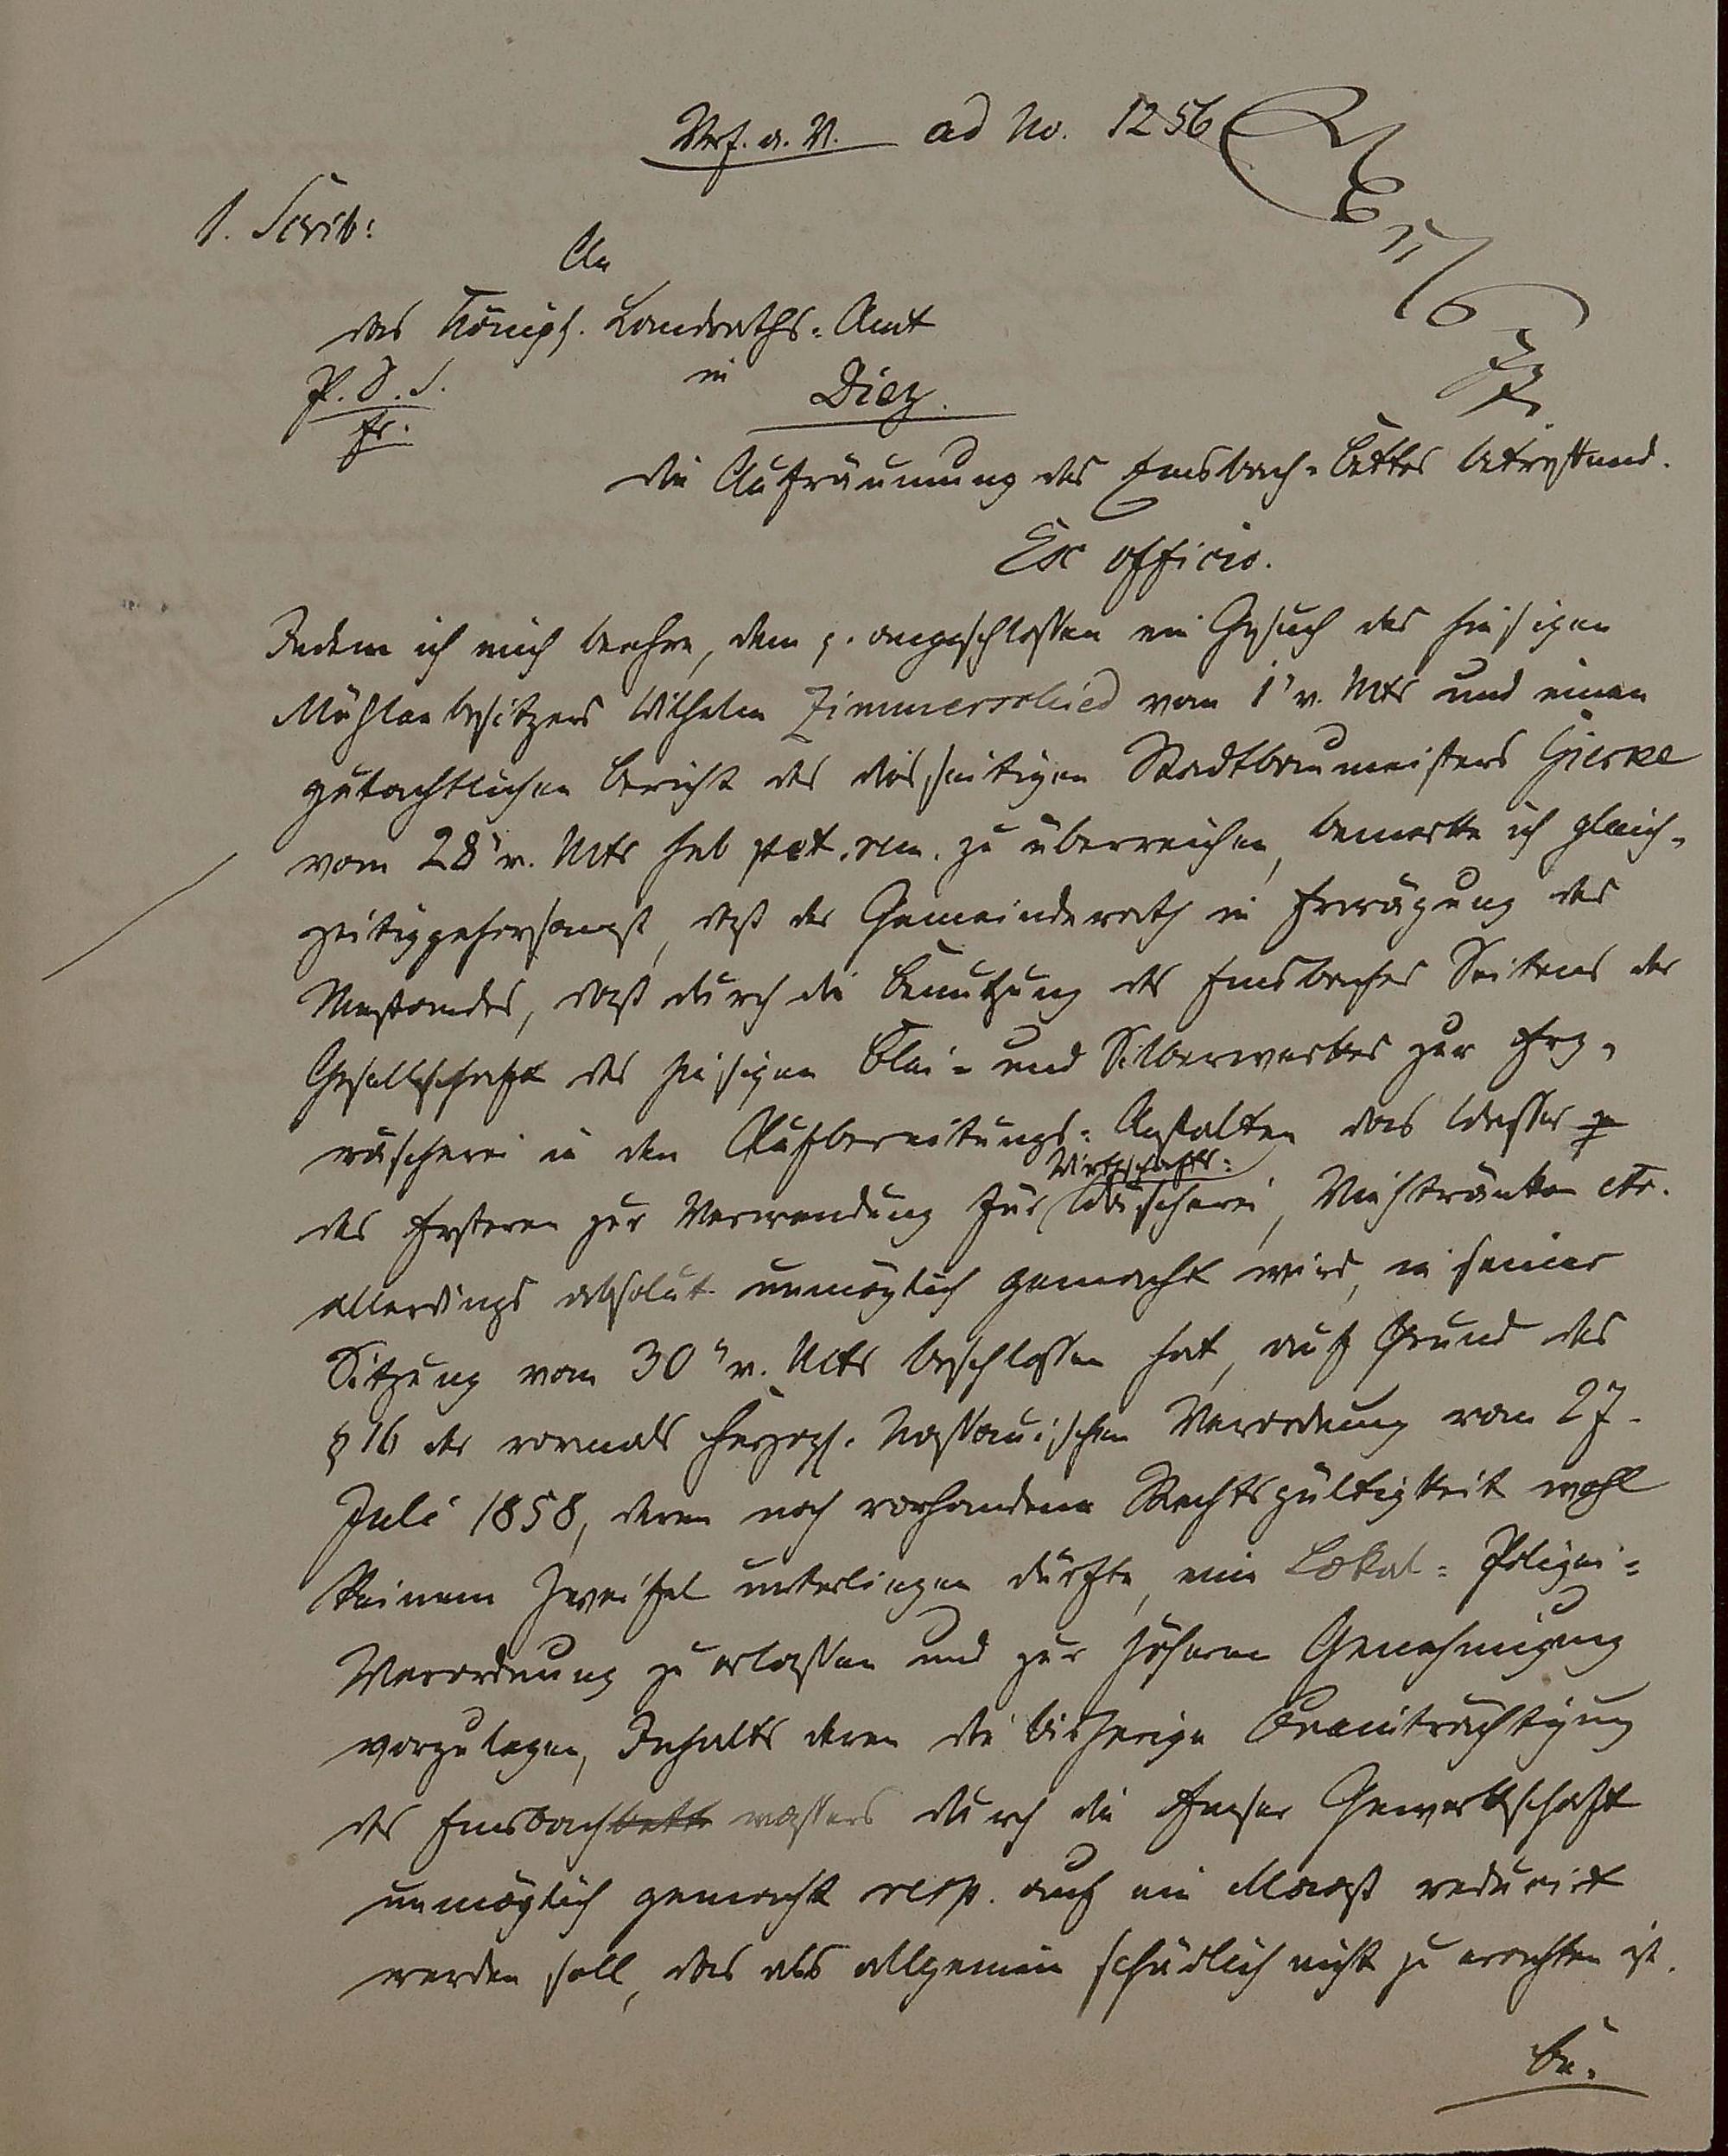 Urs. a. U. ad No. 1256
1. Scrib:
An
das Königl. Landraths-Amt
P. D. S.
fr.
in Diez.
die Aufräumung des Emsbach-Bettes betreffend.
Ex officio.
Indem ich mich beehre, dem p. angeschlossen ein Gesuch des hiesigen
Mühlenbesitzers Wilhelm Zimmerschied vom 1t v. Mts und einen
gutachtlichen Bericht des diesseitigen Stadtbaumeisters Gierke
vom 28t v. Mts sub pet. rem. zu überreichen, bemerke ich gleich-
zeitig gehorsamst, daß der Gemeinderath in Erwägung des
Umstandes, daß durch die Benutzung des Emsbaches Seitens der
Gesellschaft des hiesigen Blei- und Silberwerkes zur Erz-
wäscherei in den Aufbereitungs-Anstalten das Wasser
des Ersteren zur Verwendung für Wirthschafts-
Wäscherei, Viehtränken etc.
allerdings absolut unmöglich gemacht wird, in seiner
Sitzung vom 30t v. Mts beschlossen hat, auf Grund des
§ 16 der vormals Herzogl. Nassauischen Verordnung vom 27.
Juli 1858, deren noch vorhandene Rechtsgültigkeit wohl
keinem Zweifel unterliegen dürfte, eine Lokal-Polizei-
Verordnung zu erlassen und zur höheren Genehmigung
vorzulegen, Inhalts deren die bisherige Beeinträchtigung
des Emsbachbette wassers durch die Emser Gewerkschaft
unmöglich gemacht resp. auf ein Maaß reducirt
werden soll, das als allgemein schädlich nicht zu erachten ist.